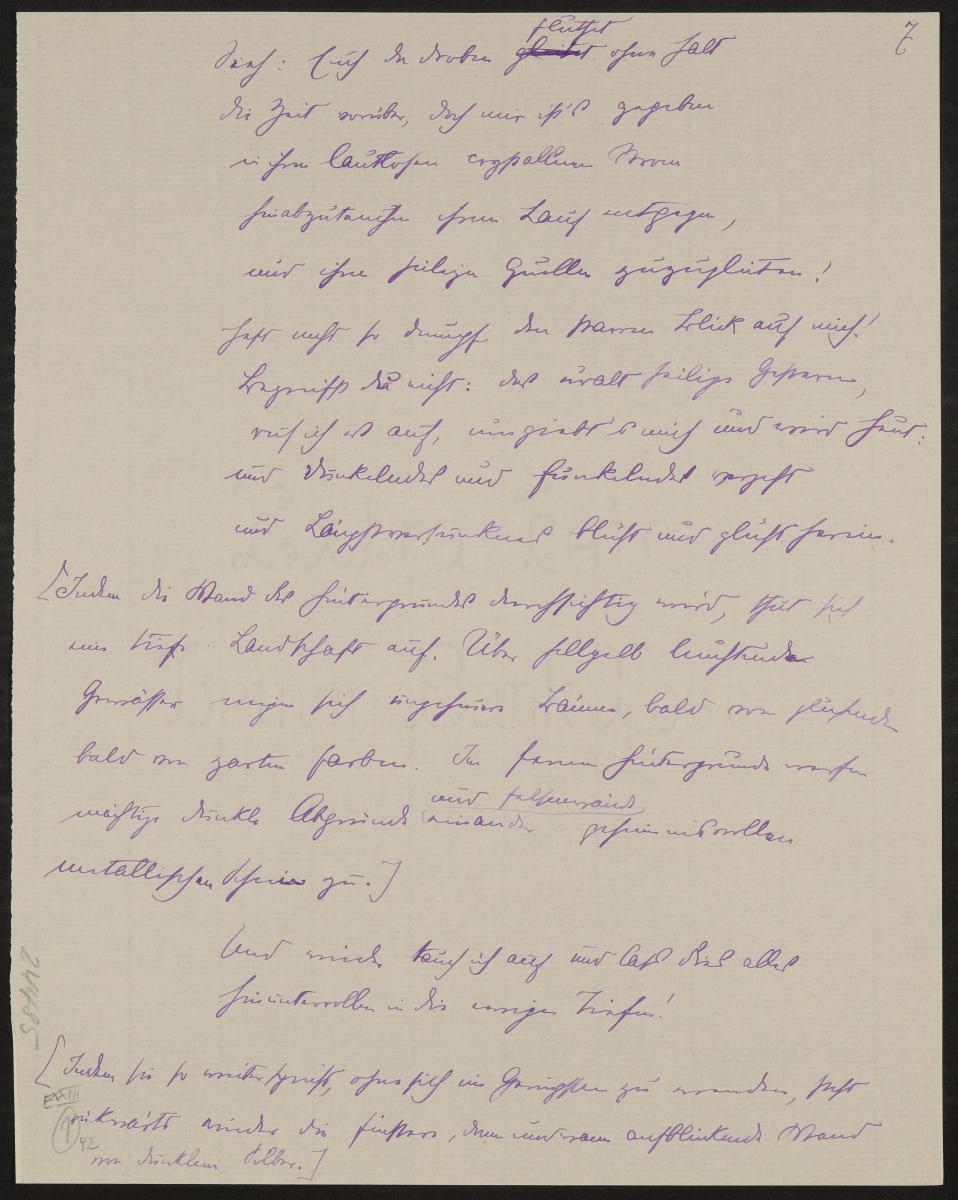 7
fluthet
Sieh: Euch da droben gleitet ohne Halt
die Zeit vorüber, doch mir ist's gegeben
in ihren lautlosen crystallnen Strom
hinabzutauchen ihrem Lauf entgegen,
und ihren heiligen Quellen zuzugleiten!
Heft nicht so dumpf den starren Blick auf mich!
Begreifst du nicht: das uralt heilige Gestern,
ruf ich es auf, umgiebt's mich und wird Heut:
und Dunkelndes und Funkelndes vergeht
und Längstversunkenes blüht und glüht herein.
[Indem die Wand des Hintergrundes durchsichtig wird, thut sich
eine tiefe Landschaft auf. Über hellgelb leuchtende
Gewässer neigen sich ungeheure Bäume, bald von glühenden
bald von zarten Farben. Im fernen Hintergrunde werfen
und Felsenwände
mächtige dunkle Abgründe einander geheimnisvollen
metallischen Schein zu.]
Und wieder tauch ich auf und lass dies alles
hinunterrollen in die ewigen Tiefen!
[Indem sie so weiterspricht, ohne sich im Geringsten zu wenden, steht
rückwärts wieder die finstere, dann und wann aufblinkende Wand
von dunklem Silber.]
24485
EXXIII
1
42